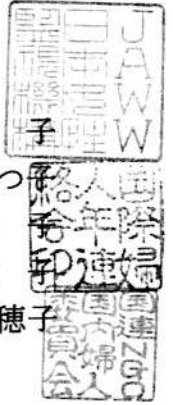 JAWW
日本女性
監視機構
子
つ子
子
子
穂子
国際婦
人年連
絡会印
国連NGO
国内婦人
委員会